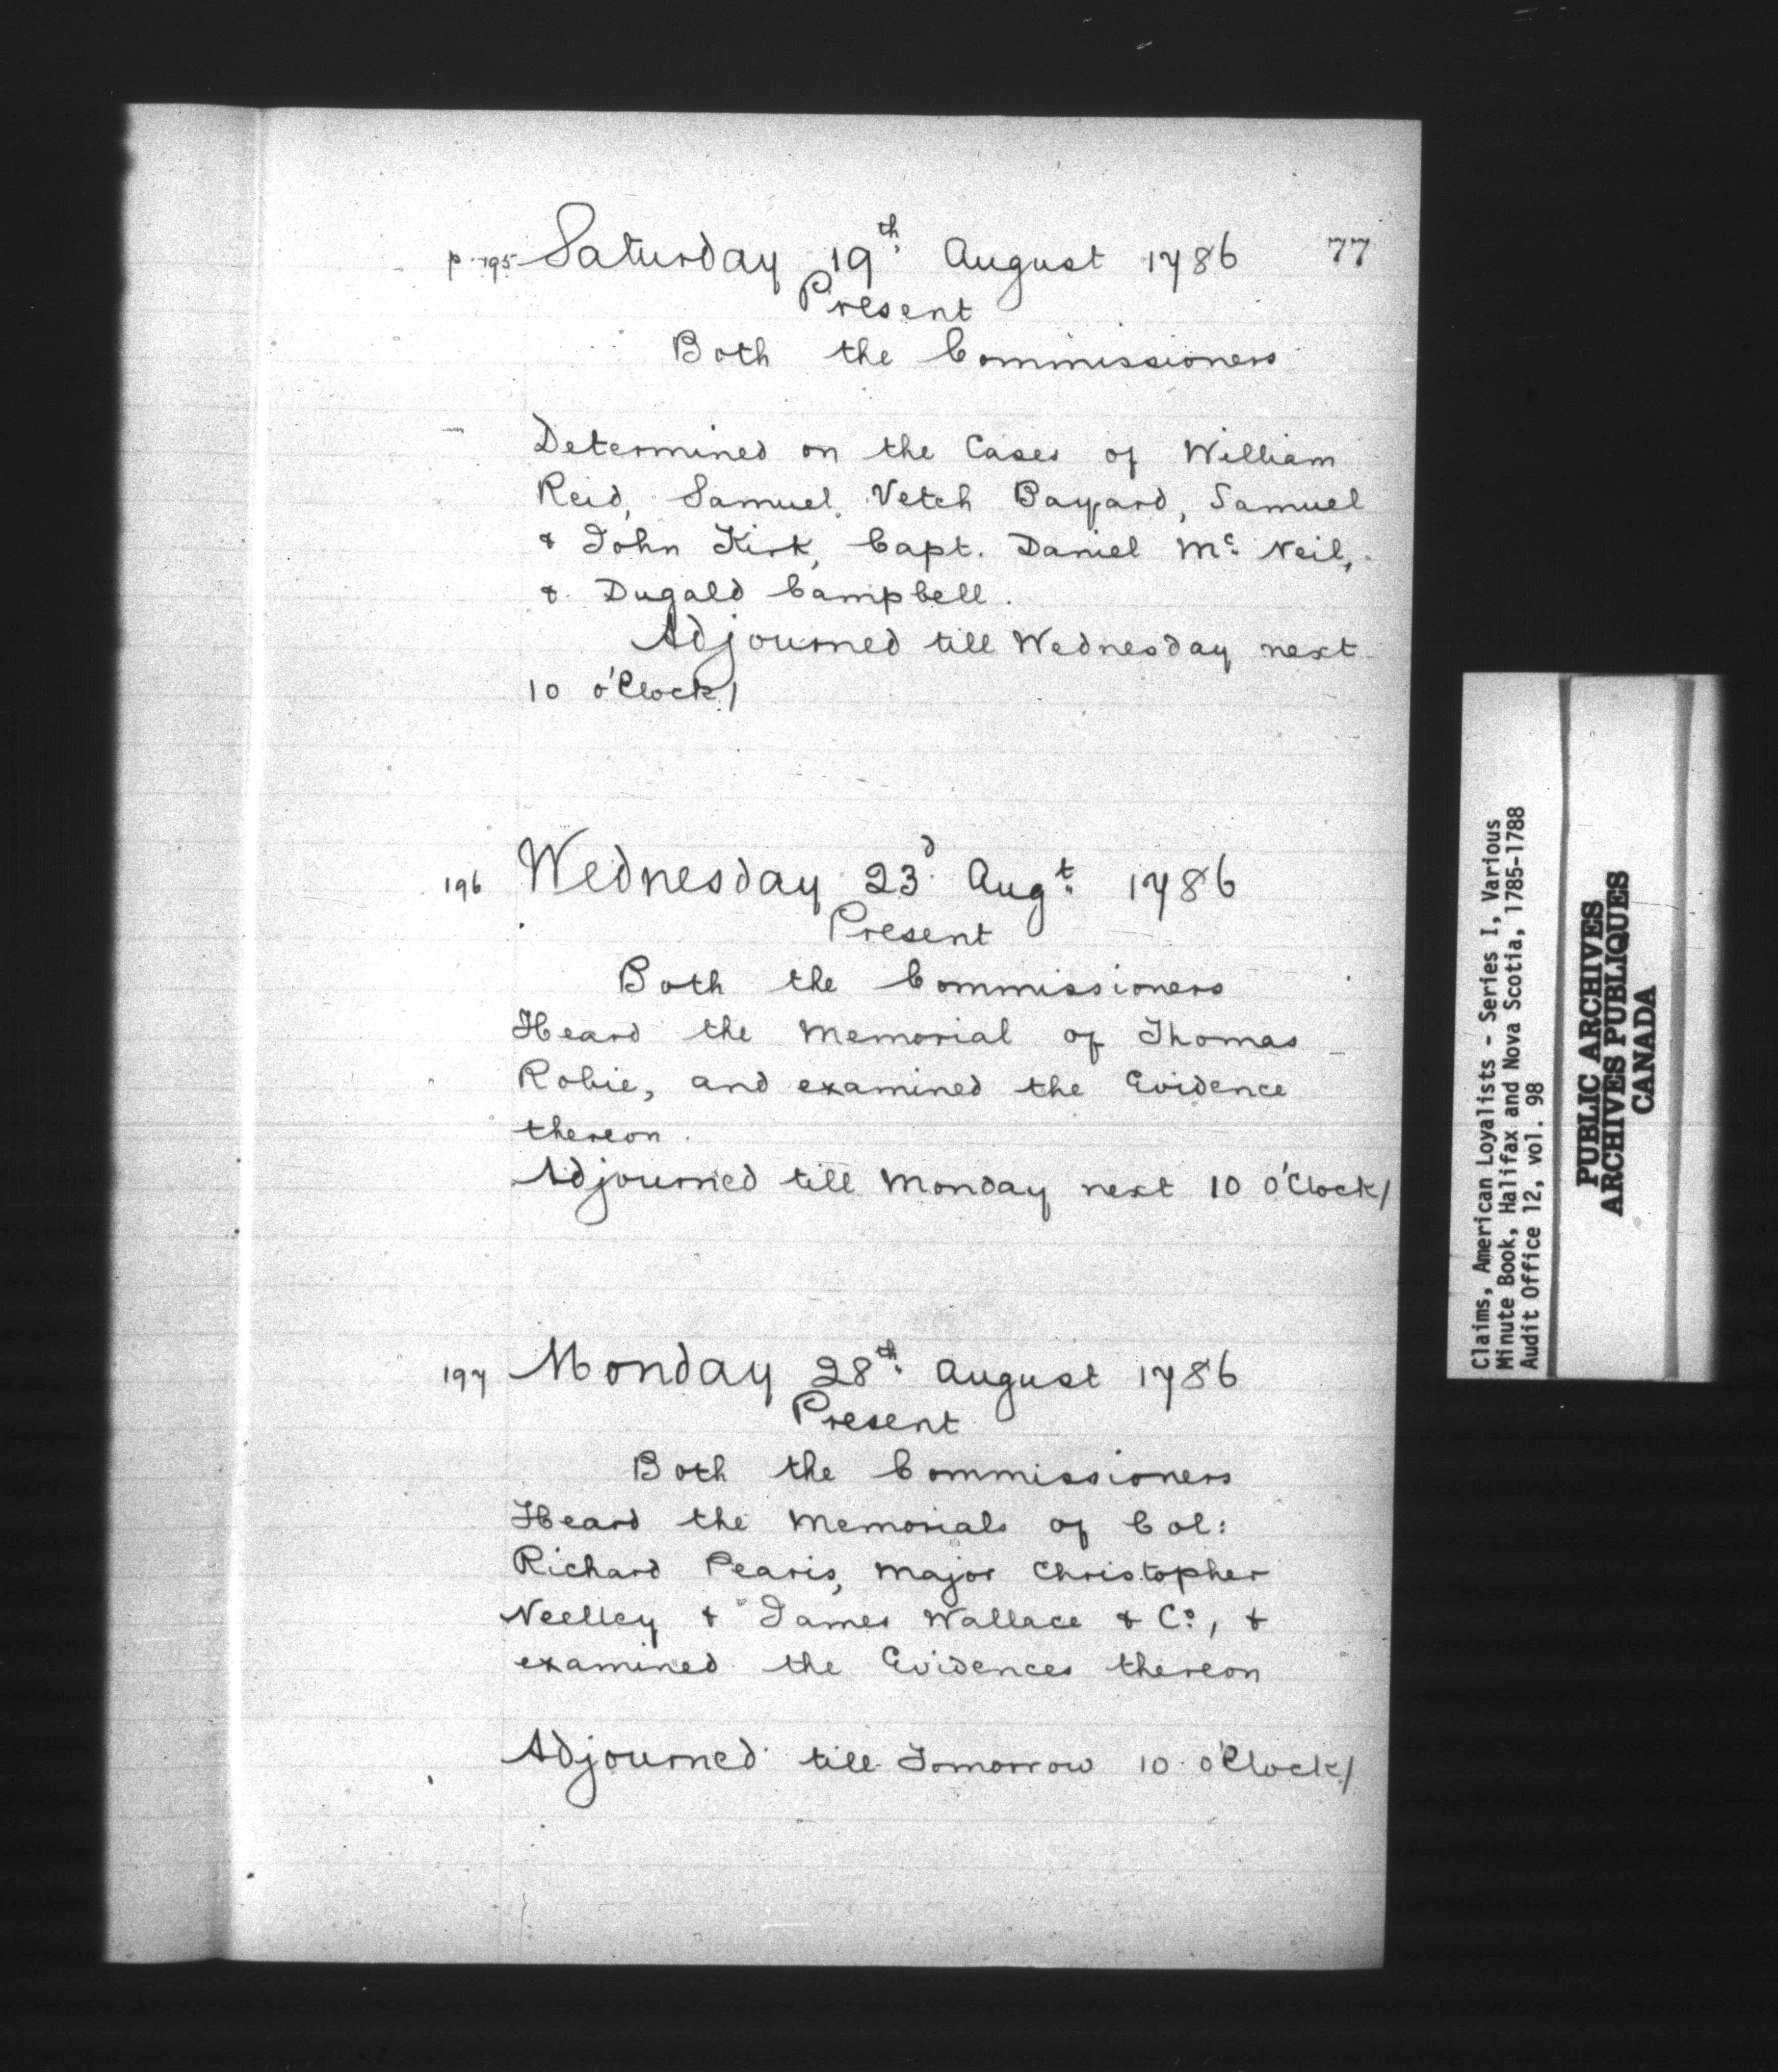 p. 195 Saturday 19th. August 1786 77
Present
Both the Commissioners
Determined on the Cases of William
Reid, Samuel Vetch Bayard, Samuel
& John Kirk, Capt. Daniel Mc. Neil,
& Dugald Campbell.
Adjourned till Wednesday next
10 o'Clock/
196 Wednesday 23d. Augt. 1786
Present
Both the Commissioners
Heard the Memorial of Thomas
Robie, and examined the Evidence
thereon.
Adjourned till Monday next 10 o'Clock/
197 Monday 28th. August 1786
Present
Both the Commissioners
Heard the Memorials of Col:
Richard Pearis, Major Christopher
Neelley & James Wallace & Co., &
examined the Evidences thereon
Adjourned till Tomorrow 10 o'Clock/
Claims, American Loyalists - Series I, Various
Minute Book, Halifax and Nova Scotia, 1785-1788
Audit Office 12, vol. 98
PUBLIC ARCHIVES
ARCHIVES PUBLIQUES
CANADA